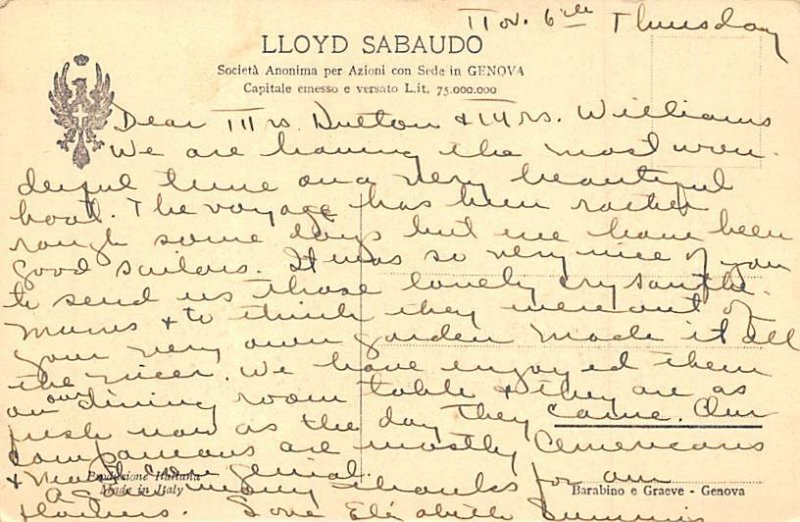 Nov. 6th Thursday
LLOYD SABAUDO
Società Anonima per Azioni con Sede in GENOVA
Capitale emesso e versato L.it. 75.000.000
Dear Mrs. Dutton & Mrs. Williams
We are having the most won-
derful time on a very beautiful
boat. The voyage has been rather
rough some days but we have been
good sailors. It was so very nice of you
to send us those lovely crysanthe-
mums & to think they were out of
your very own garden made it all
the nicer. We have enjoyed them
on our dining room table & they are as
fresh now as the day they came. Our
companions are mostly Americans
& most congenial.
Produzione Italiana
Made in Italy
many thanks for our
Barabino e Graeve - Genova
flowers. Love Elizabeth